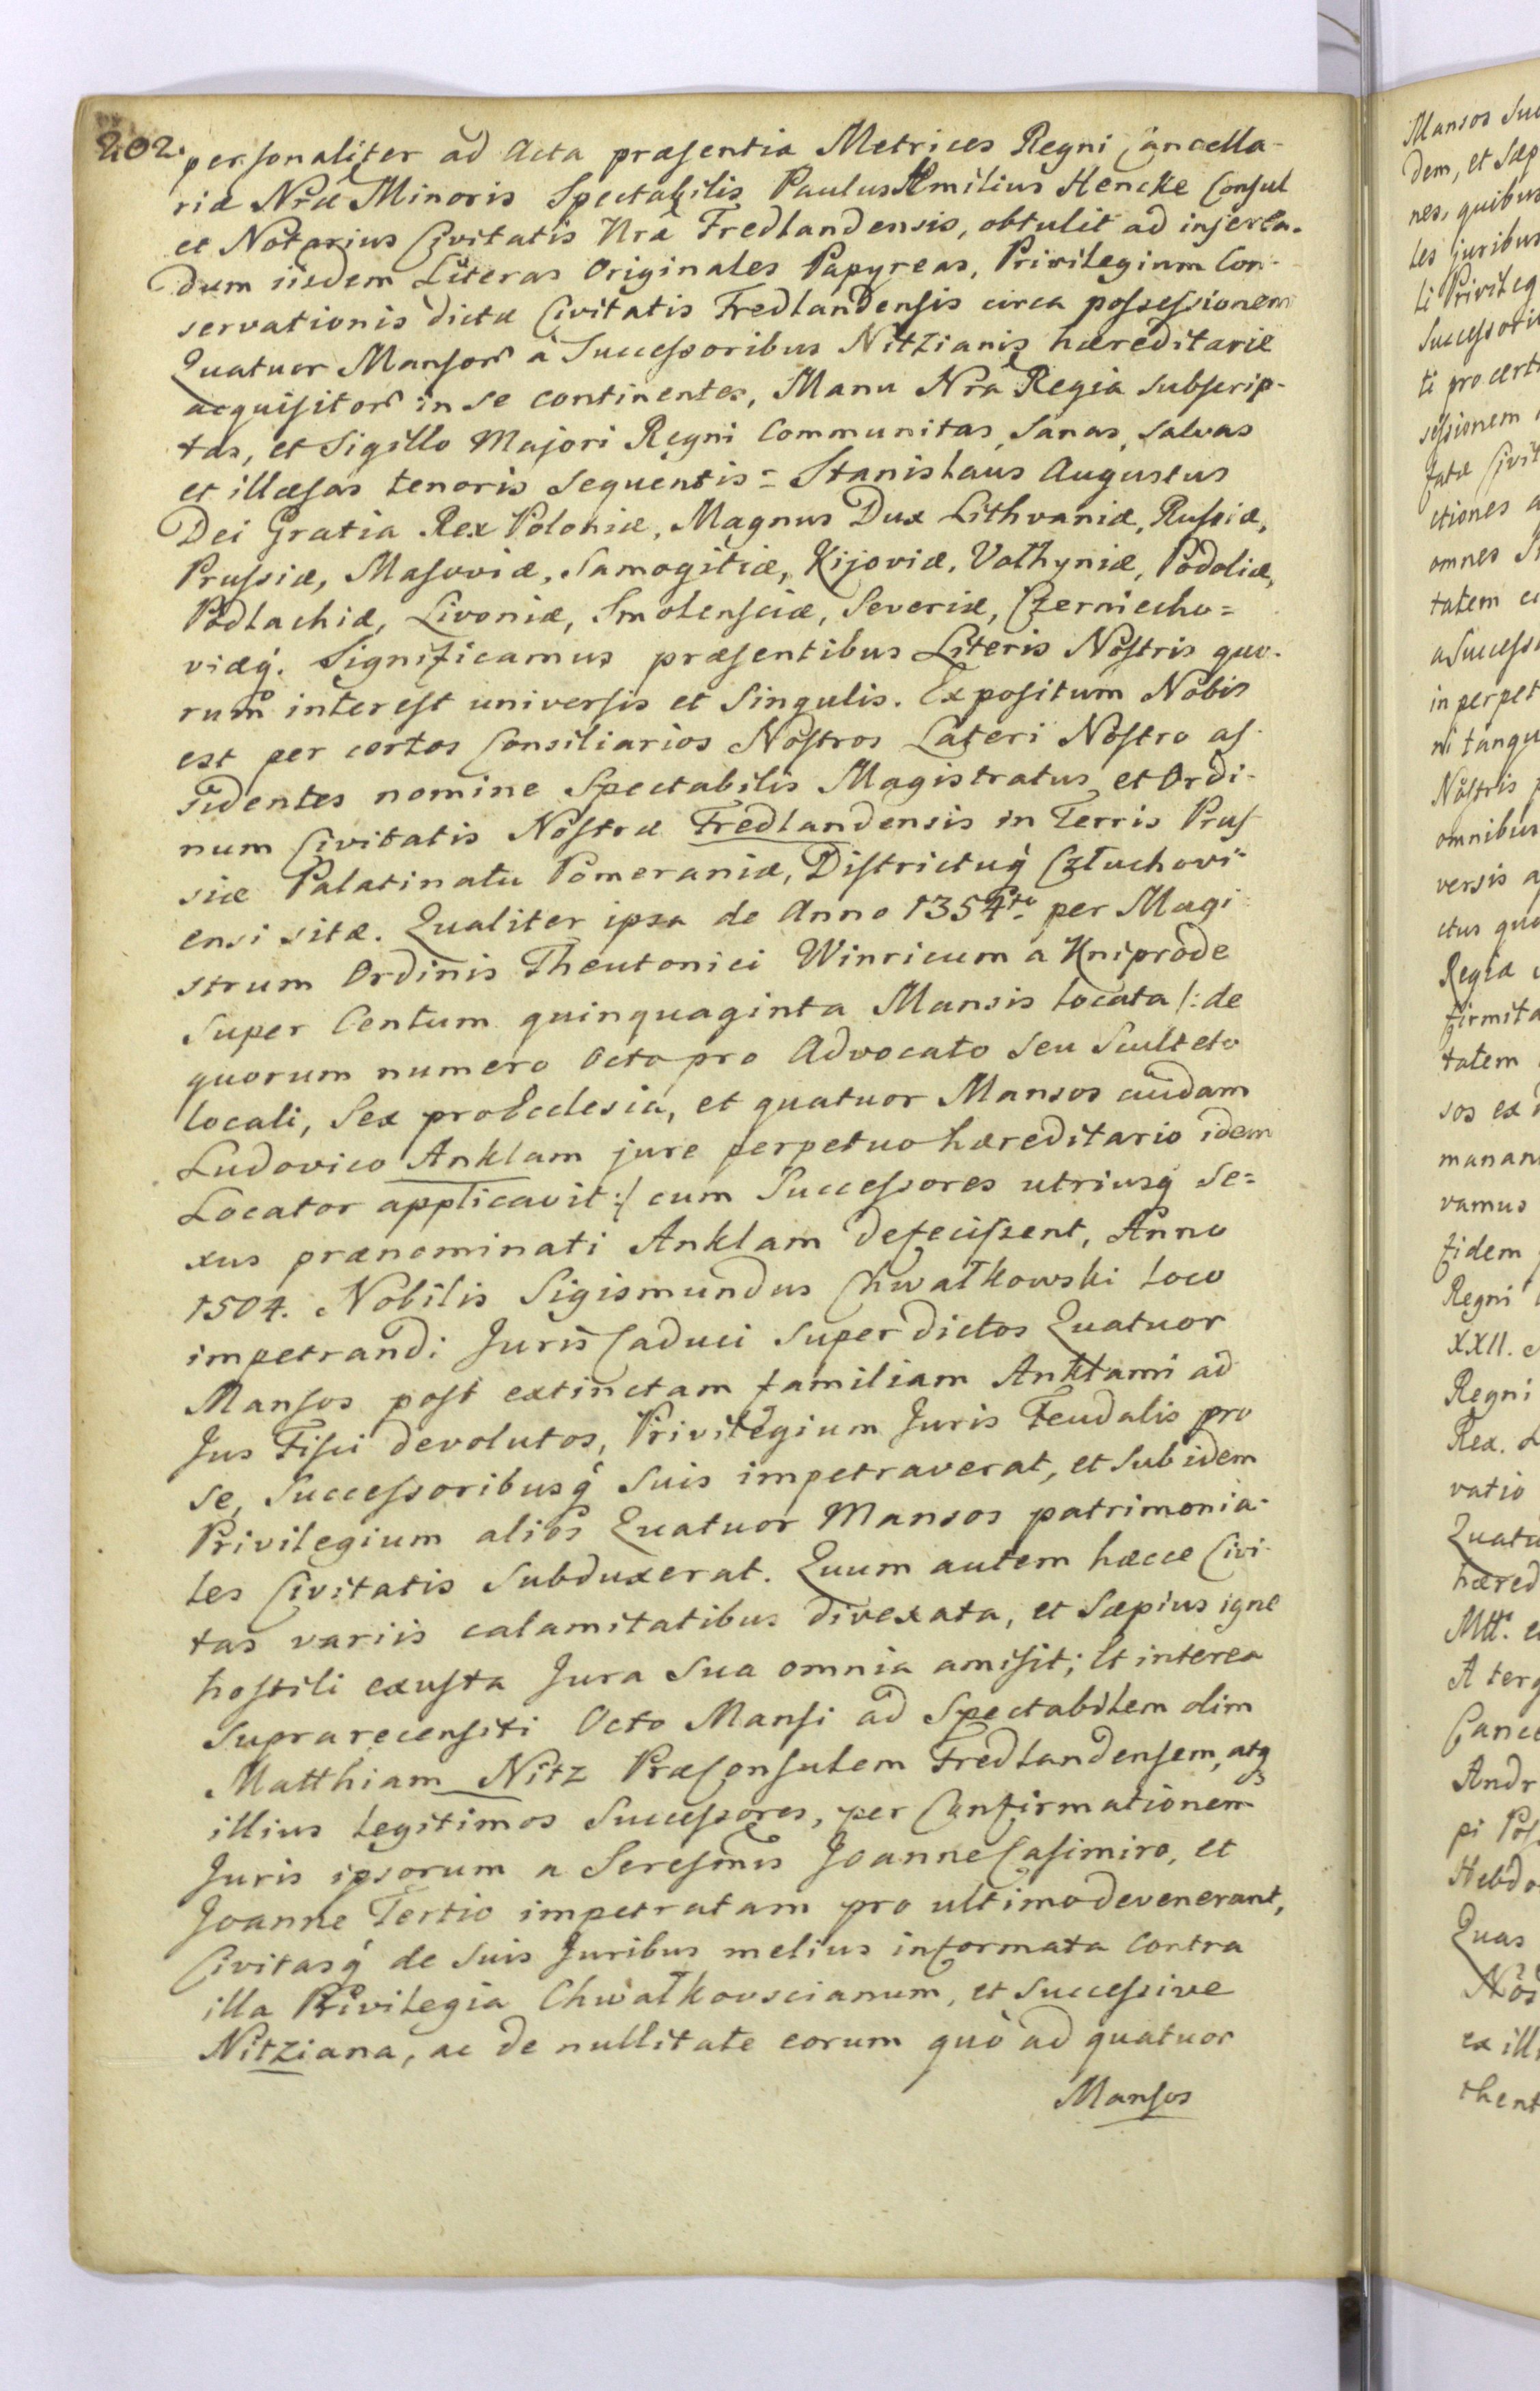 202.
personaliter ad Acta præsentia Metrices Regni Cancella-
riæ Nræ Minoris Spectabilis Paulus Æmilius Hencke Consul
et Notarius Civitatis Nræ Fredlandensis, obtulit ad inseren-
dum iisdem Literas Originales Papyreas, Privilegium Con-
servationis dictæ Civitatis Fredlandensis circa possessionem
Quatuor Mansor̃ à Successoribus Nitzianis hæreditarie
acquisitor̃ in se continentes, Manu Nrã Regia subscrip-
tas, et Sigillo Majori Regni Communitas, Sanas, Salvas
et illæsas tenoris Sequentis = Stanislaus Augustus
Dei Gratia Rex Poloniæ, Magnus Dux Lithvaniæ, Russiæ,
Prussiæ, Masoviæ, Samogitiæ, Kijoviæ, Volhyniæ, Podoliæ,
Podlachiæ, Livoniæ, Smolensciæ, Severiæ, Czerniecho=
viæq́. Significamus præsentibus Literis Nostris quo-
rum interest universis et Singulis. Expositum Nobis
est per certos Consiliarios Nostros Lateri Nostro as-
sidentes nomine Spectabilis Magistratus et Ordi-
num Civitatis Nostræ Fredlandensis in Terris Prus-
siæ Palatinatu Pomeraniæ, Districtuq́ Człuchovi-
ensi sitæ. Qualiter ipsa de Anno 1354to per Magi-
strum Ordinis Theutonici Winricum a Kniprode
Super Centum quinquaginta Mansis locata /: de
quorum numero Octo pro Advocato seu Sculteto
locali, Sex pro Ecclesia, et quatuor Mansos cuidam
Ludovico Anklam jure perpetuo hæreditario idem
Locator applicavit :/ cum Successores utriusq́ Se=
xus prænominati Anklam defecissent, Anno
1504. Nobilis Sigismundus Chwałkowski loco
impetrandi Juris Caduci Super dictos Quatuor
Mansos post extinctam familiam Anklami ad
Jus Fisci devolutos, Privilegium Juris Feudalis pro
se, Successoribusq́ Suis impetraverat, et Sub idem
Privilegium alios Quatuor Mansos patrimonia-
les Civitatis Subduxerat. Quum autem hæcce Civi-
tas variis calamitatibus divexata, et Sæpius igne
hostili exusta Jura Sua omnia amisit; Et interea
Suprarecensiti Octo Mansi ad Spectabilem olim
Matthiam Nitz Præconsulem Fredlandensem, atq
illius legitimos Successores, per Confirmationem
Juris ipsorum a Seresmis Joanne Casimiro, et
Joanne Tertio impetratam pro ultimo devenerant,
Civitasq́ de Suis Juribus melius informata Contra
illa Privilegia Chwałkovscianum, et Successive
Nitziana, ac de nullitate eorum quò ad quatuor
Mansos
Mansos
dem, et Sæp
nes, quibus
les juribus
li Privileg
Successori
ti pro cert
sessionem
fatæ Civit
ctiones a
omnes
tatem
a Success
in perpet
ni tanqu
Nostris
omnibus
versis a
ctus
Regia
firmita
tatem
sos ex
manan
vamus
fidem
Regni
XXII.
Regni
Rex.
vatio
Quatu
hæred
A terg
Cance
Andr
pi
Hebdo
Quas
ex ill